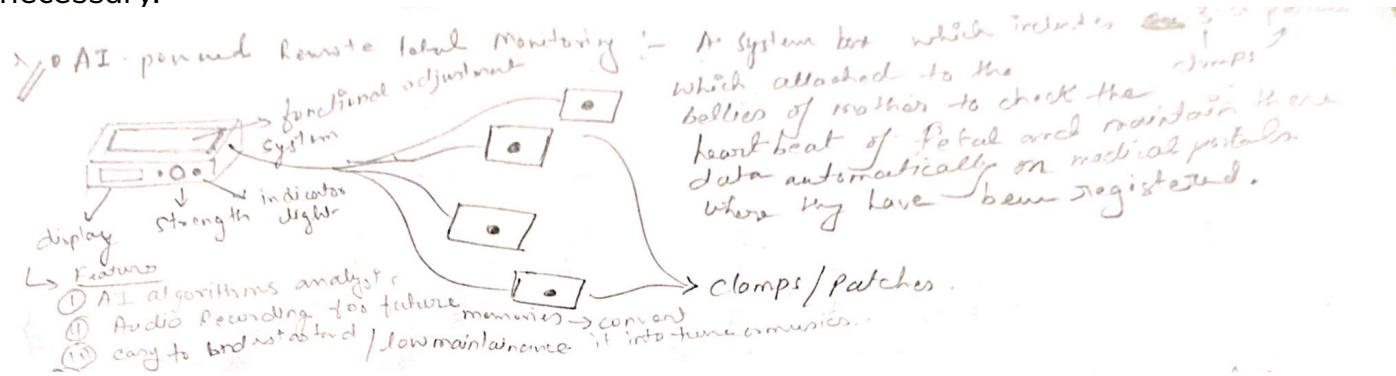 necessary.
AI powered Remote fetal Monitoring :- A system box which includes
clamps
which attached to the
bellies of mother to check the
heartbeat of fetal and maintain there
data automatically on medical portals
where they have been registered.
functional adjustment
system
display
strength
indicator
light
clamps/Patches.
Features
(I) AI algorithms analysis
(II) Audio Recording for future memories → convert
it into tune or musics.
(III) easy to understand / low maintainance